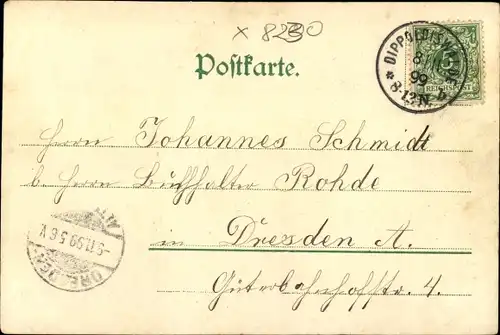 x 8230
Postkarte.
* DIPPOLDISWALDE b
8
99
8-12 N.
REICHSPOST
Herrn Johannes Schmidt
b. Herrn Buchhalter Rohde
in Dresden A.
Güterbahnhofstr. 4.
DRESDEN ALTST.
9.11.99.5-6 V.